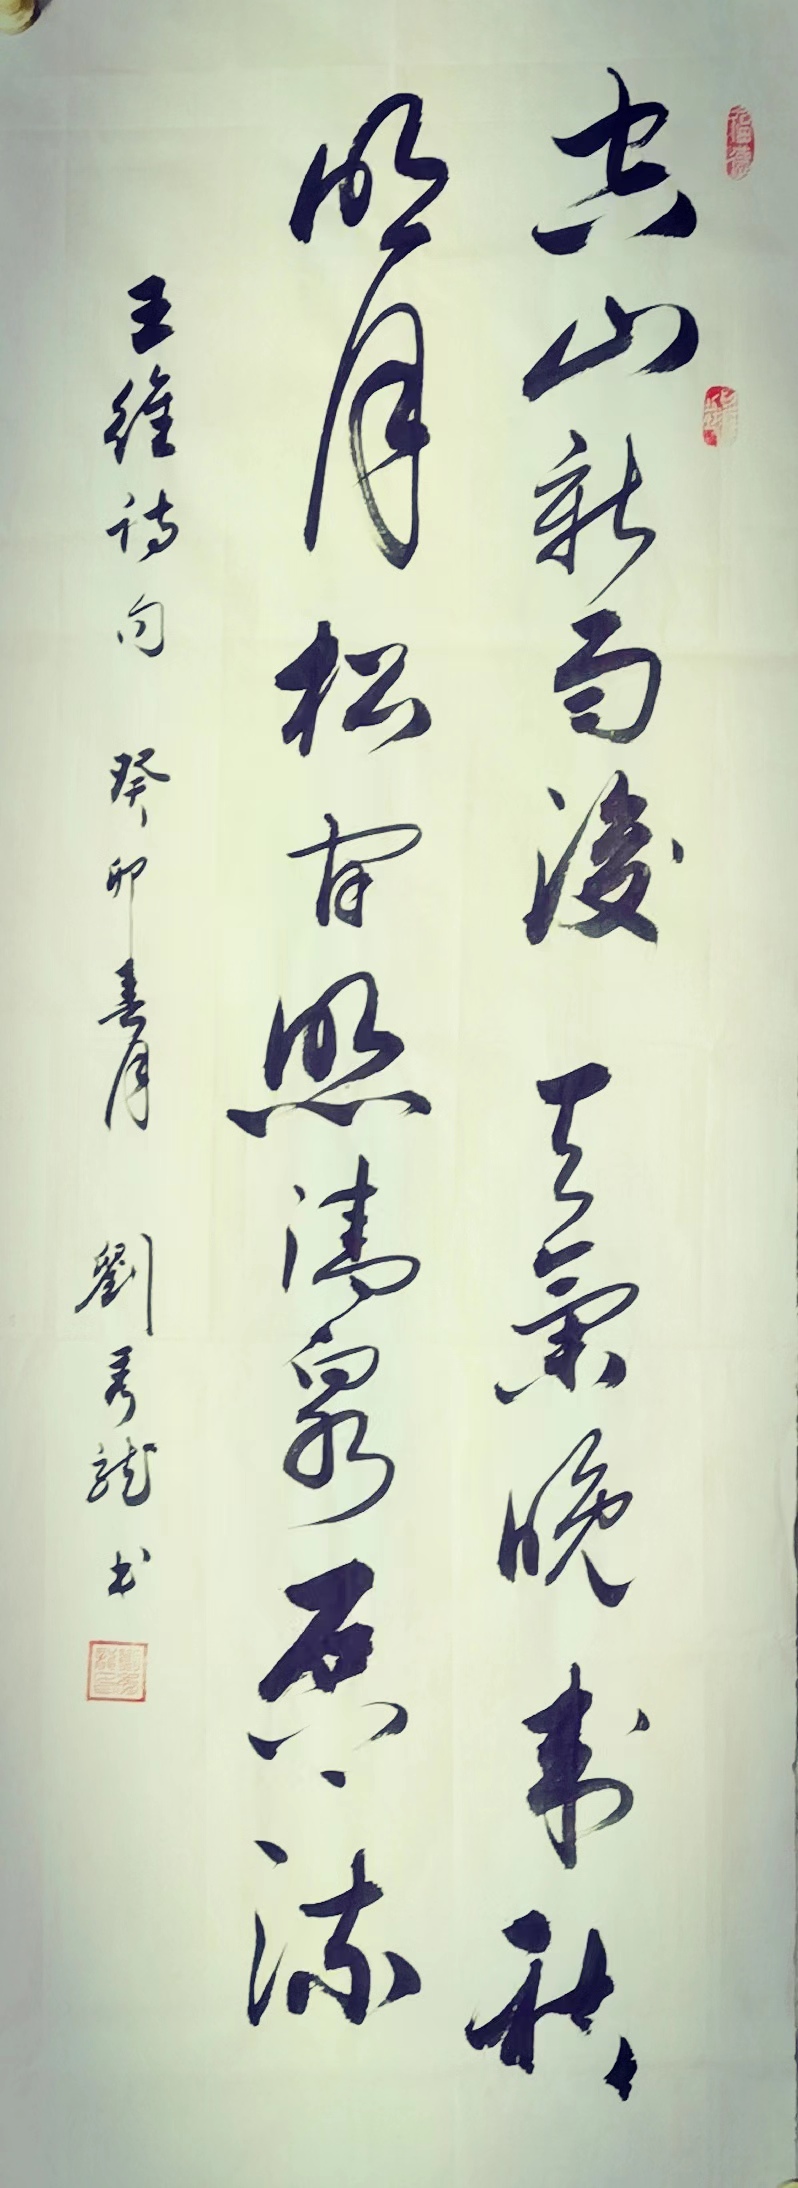 空山新雨後天氣晚来秋
明月松间照清泉石上流
王維诗句 癸卯春月 劉秀龍书